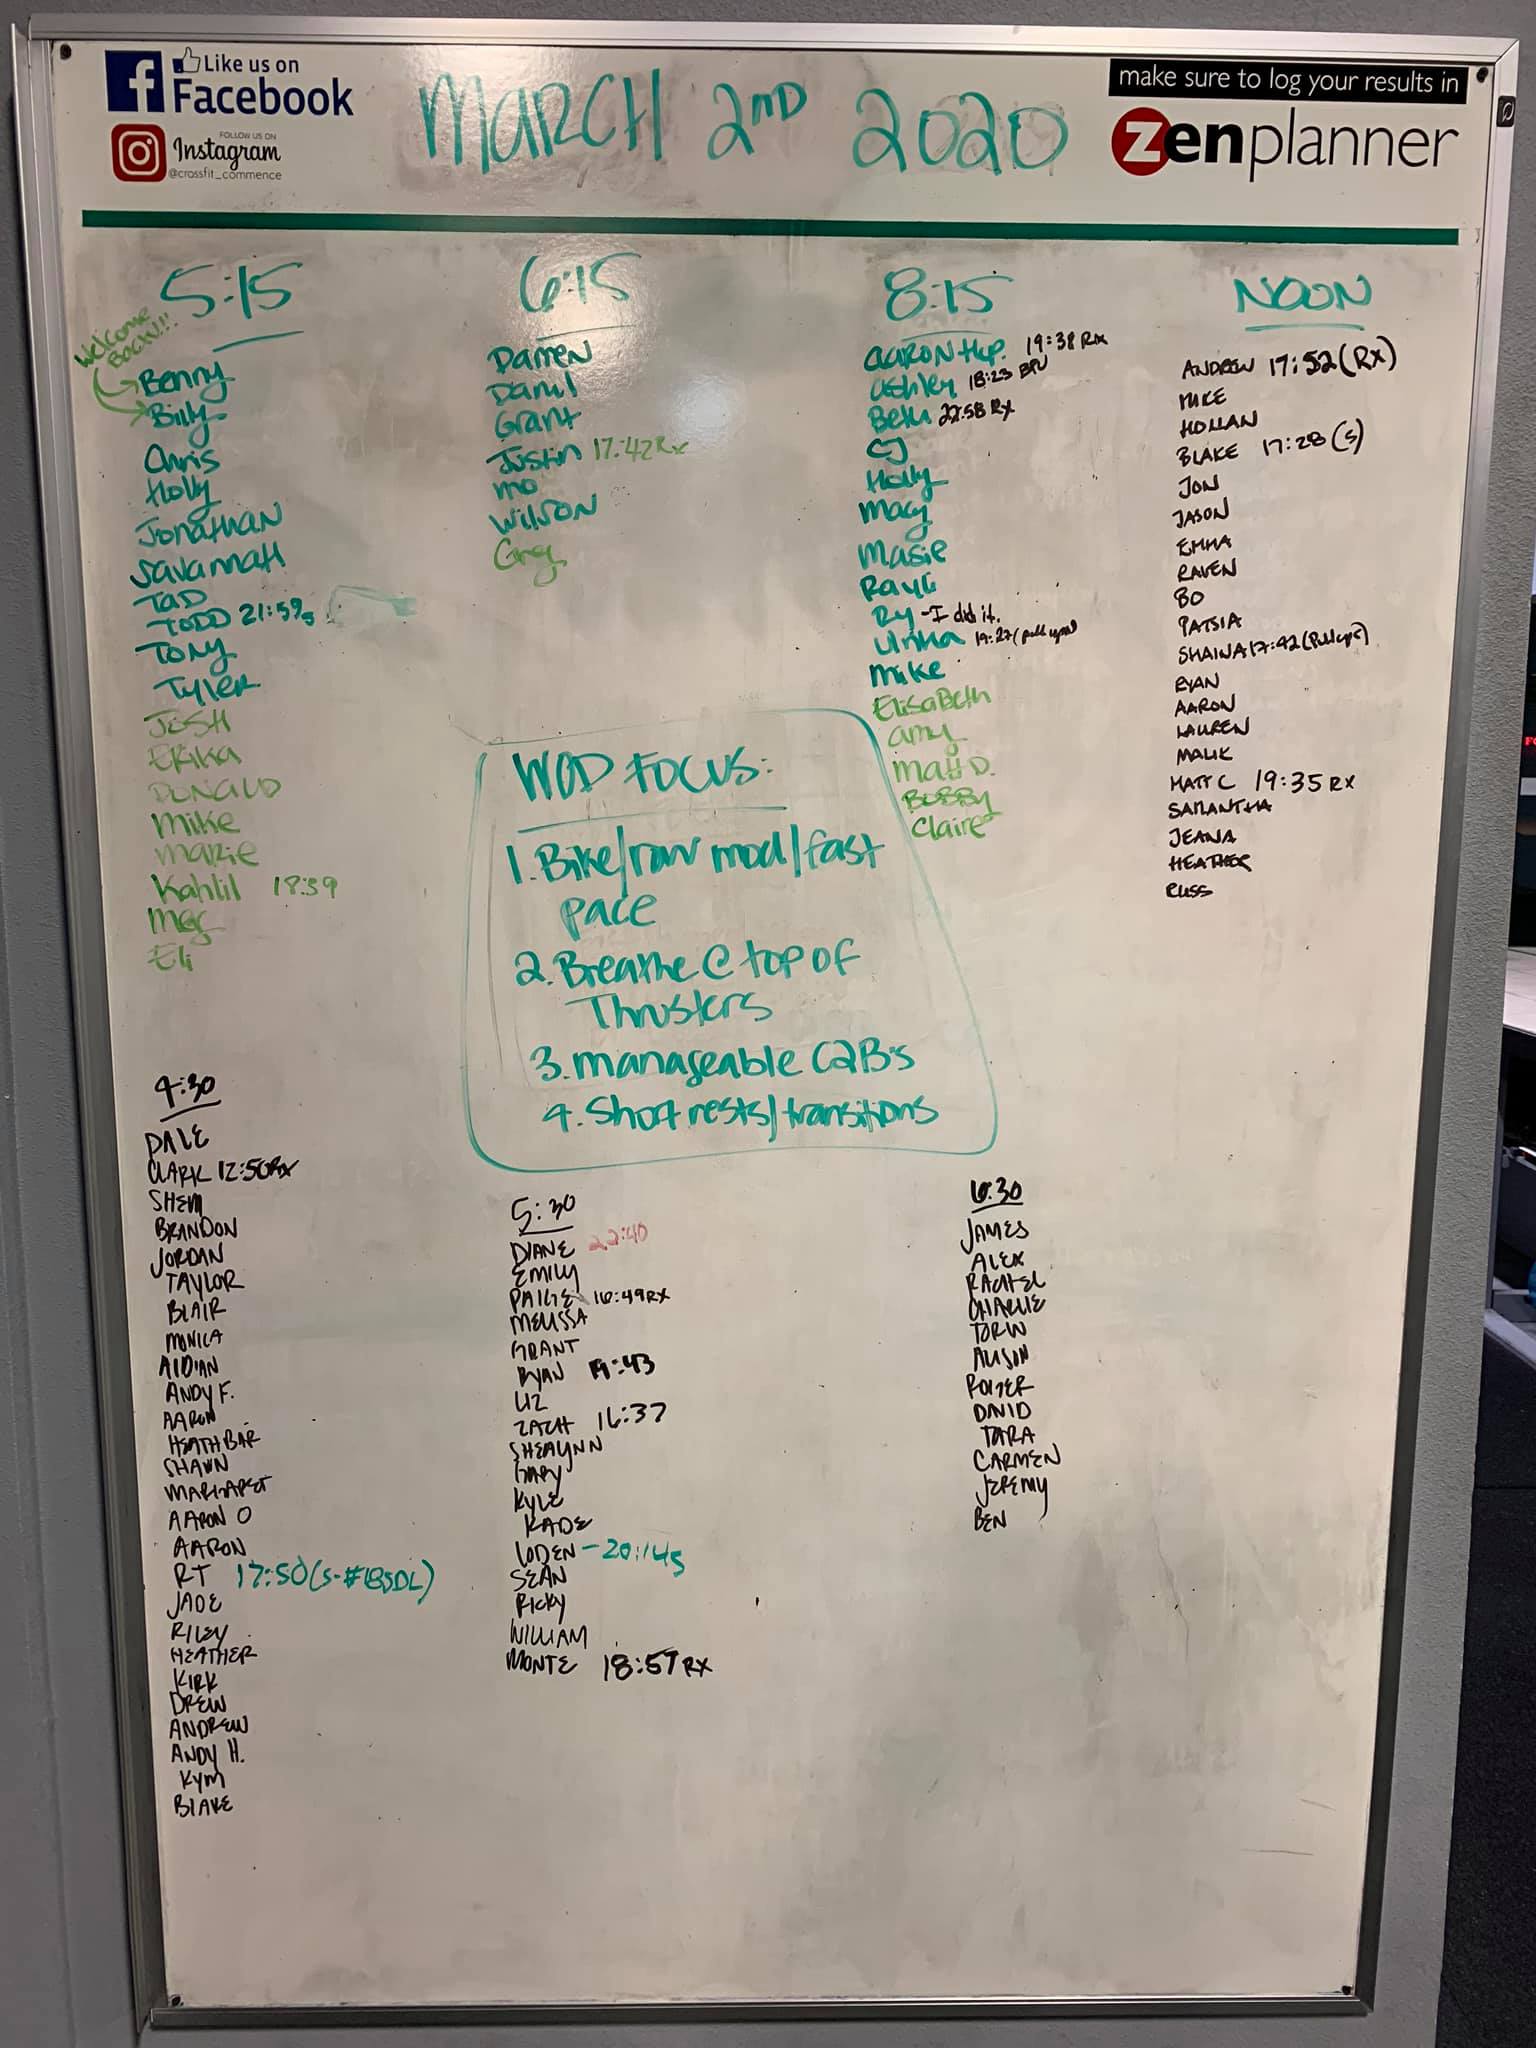 Like us on
Facebook
FOLLOW US ON
Instagram
@crossfit_commence
MARCH 2ND 2020
make sure to log your results in
zenplanner
5:15
Welcome
BACK!!!
Benny
Billy
Chris
Holly
Jonathan
Savannah
TAD
TODD 21:59s
Tony
Tyler
JOSH
Erika
DONALD
Mike
Marie
Kahlil 18:39
Meg
Eli
6:15
Darren
Daryl
Grant
Justin 17:42 Rx
MO
WILSON
Greg
8:15
AARON Hep. 19:38 Rx
Ashley 18:23 BPU
Beth 22:58 Rx
CJ
Holly
Macy
Masie
Rayli
Ry -I did it.
Urika 19:27 (pull ups)
Mike
ElisaBeth
Amy
Matt D.
BOBBY
Claire
NOON
ANDREW 17:52 (RX)
MIKE
HOLLAN
BLAKE 17:28 (S)
JON
JASON
EMMA
RAVEN
BO
PATSIA
SHAINA 17:42 (Pullups)
RYAN
AARON
LAUREN
MALIK
MATT C 19:35 RX
SAMANTHA
JEANA
HEATHER
RUSS
WOD FOCUS:
1. Bike/row mod/fast
pace
2. Breathe @ top of
Thrusters
3. manageable C2B's
4. Short rests/transitions
4:30
DALE
CLARK 12:50 RX
SHEM
BRANDON
JORDAN
TAYLOR
BLAIR
MONICA
AIDIAN
ANDY F.
AARON
HEATH BAR
SHAWN
MARGARET
AARON O
AARON
RT 17:50 (S-#185DL)
JADE
RILEY
HEATHER
KIRK
DREW
ANDREW
ANDY H.
KYM
BLAKE
5:30
DIANE 22:40
EMILY
PAIGE 16:49 RX
MELISSA
GRANT
RYAN 19:43
LIZ
ZACH 16:37
SHEALYNN
GARY
KYLE
KADE
LODEN - 20:14S
SEAN
RICKY
WILLIAM
MONTE 18:57 RX
6:30
JAMES
ALEX
RACHEL
CHARLIE
TORIN
ALISON
ROGER
DAVID
TARA
CARMEN
JEREMY
BEN